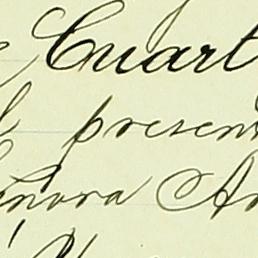 Cuart
presen
nora An